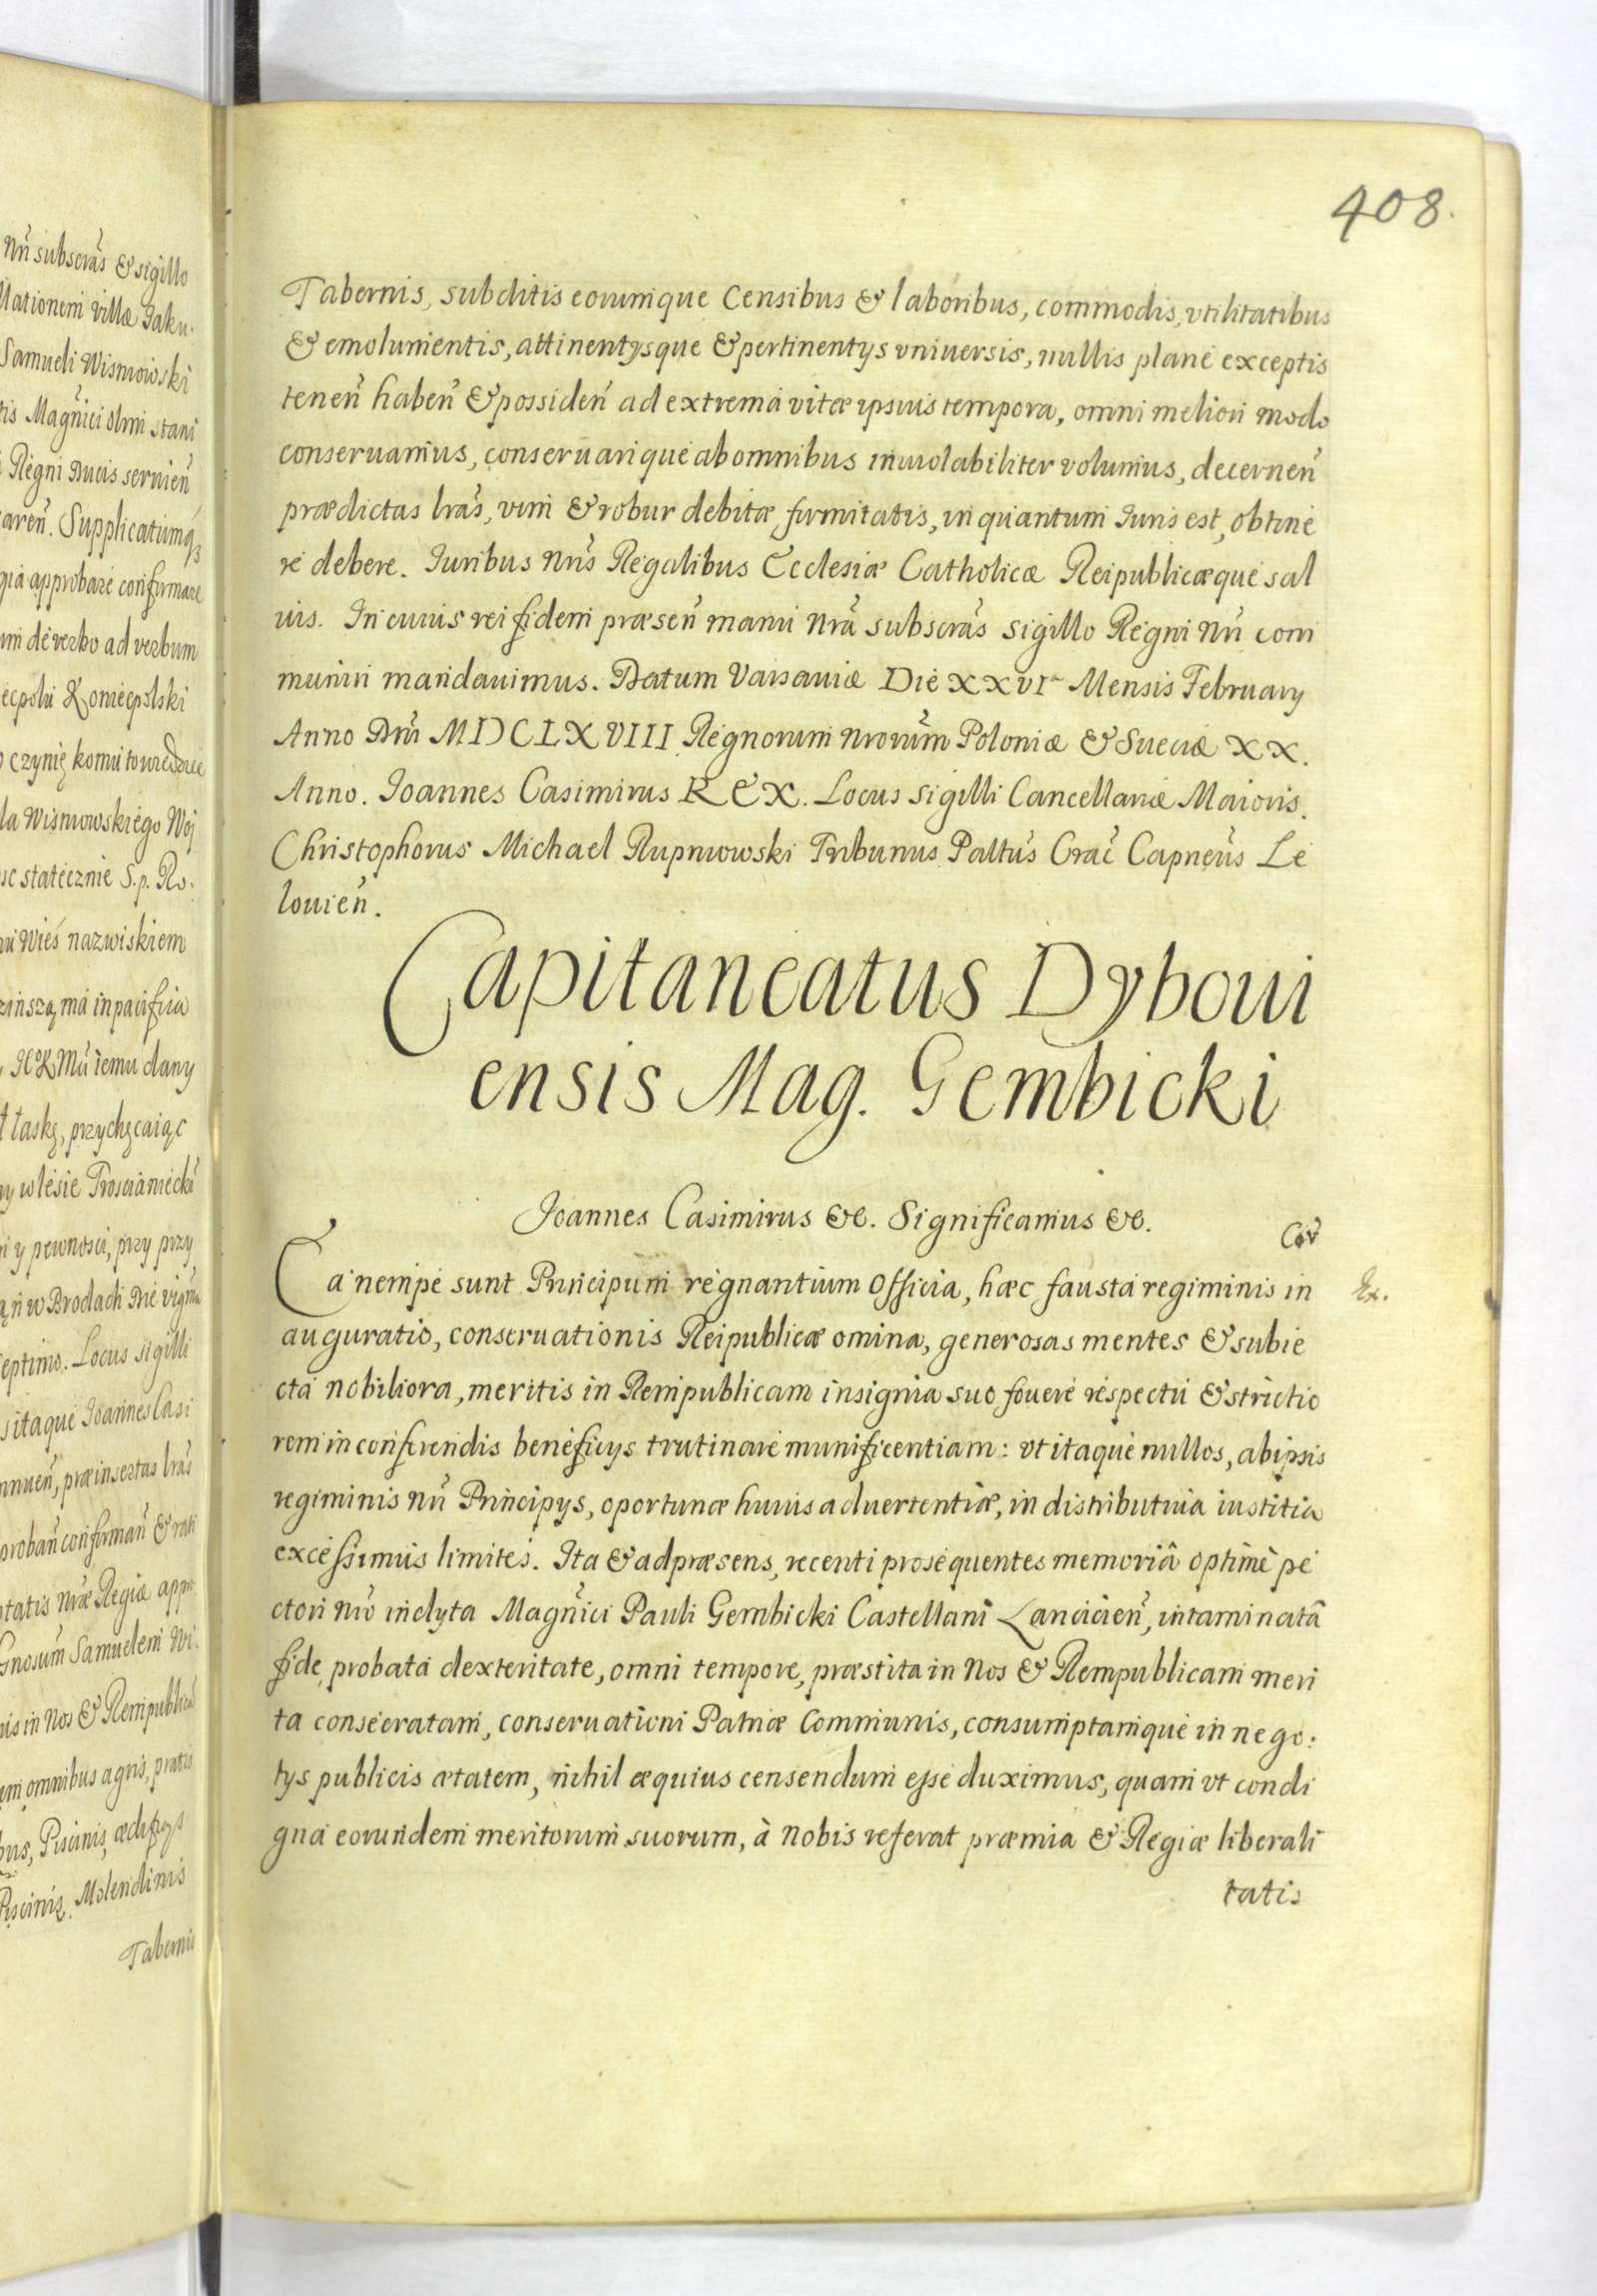 nři subscrãs & sigillo
llationem villæ Jaku
Samueli Wisniowski
tis Magñici olim Stani
Regni Ducis servien̄
aren̄. Supplicatumq₃
gia approbare confirmare
um de verbo ad verbum
iecpolu Koniecpolski
czynię komu to wiedziec
la Wisniowskiego Woj
sc statecznie S.p. Ro.
Wieś nazwiskiem
inszą, ma in pacifica
JKMci iemu dany
łaskę, przychęcaiąc
ny w lesie
i y pewnosci, przy przy
w Brodach Die vigma
septimo. Locus sigilli
s itaque Joannes Casi
nnuen̄, præinsertas lrãs
proban̄ confirman̄ & rati
tatis nræ Regiæ appro
Gnosum Samuelem Wi.
nis in Nos & Rempublicã
um omnibus agris, pratis
bus, Piscinis, ædificys
Piscinis, Molendinis
Tabernis
408.
Tabernis, subditis eorumque Censibus & laboribus, commodis, vtilitatibus
& emolumentis, attinentysque & pertinentys vniuersis, nullis plane exceptis
tenen̄ haben̄ & possiden̄ ad extrema vitæ ipsius tempora, omni meliori modo
conseruamus, conseruarique ab omnibus inuiolabiliter volumus, decernen̄
prædictas lrãs, vim & robur debitæ firmitatis, in quantum Juris est, obtine
re debere. Juribus nris Regalibus Ecclesiæ Catholicæ Reipublicæque sal
uis. In cuius rei fidem præsen̄ manu nrã subscrãs sigillo Regni nři com
muniri mandauimus. Datum Varsauiæ Die XXVIa Mensis February
Anno Dni MDCLXVIII Regnorum nrorum Poloniæ & Sueciæ XX.
Anno. Joannes Casimirus REX. Locus sigilli Cancellariæ Maioris.
Christophorus Michael Rupniowski Tribunus Paltus Crac̄ Capneus Le
louien̄.
Capitaneatus Dyboui
ensis Mag. Gembicki
Joannes Casimirus &c. Significamus &c.
Ca nempe sunt Principum regnantium Officia, hæc fausta regiminis in
auguratio, conseruationis Reipublicæ omina, generosas mentes & subie
cta nobiliora, meritis in Rempublicam insignia suo fouere respectu & strictio
rem in conferendis beneficys trutinare munificentiam: vt itaque nullos, ab ipsis
regiminis nři Principys, oportunæ huius aduertentiæ, in distributiua iustitia
excessimus limites. Ita & ad præsens, recenti prosequentes memoriâ optimè pe
ctori nro inclyta Magñici Pauli Gembicki Castellani Lancicien̄, intaminatâ
fide, probata dexteritate, omni tempore, præstita in Nos & Rempublicam meri
ta consecratam, conseruationi Patriæ Communis, consumptamque in nego:
tys publicis ætatem, nihil æquius censendum esse duximus, quam vt condi
gna eorundem meritorum suorum, à nobis referat præmia & Regiæ liberali
tatis